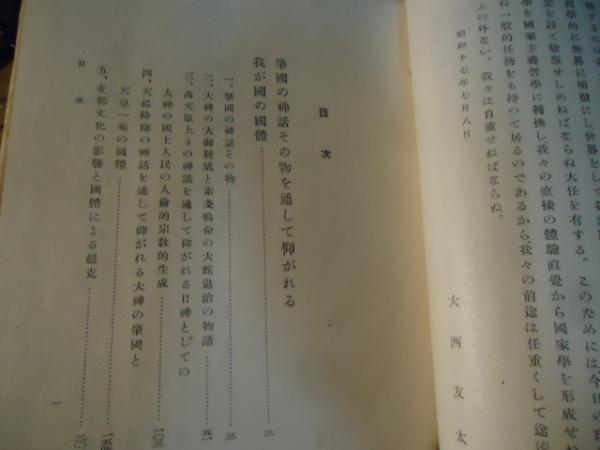 哲學的に世界に明徴にし世界をして我が
念を以て敬服せしめねばならぬ大任を有する。このためには今日の
學を國家主義哲學に轉換し我々の直接の體驗直覺から國家學を形成せね
ね一般的任務をも持つて居るのであるから、我々の前途は任重くして途
ふの外ない。我々は自重せねばならぬ。
昭和十七年七月八日
大西友太
目次
肇國の神話その物を通して仰がれる
我が國の國體
一、肇國の神話その物
二、大神の大御稜威と素戔嗚命の大蛇退治の物語
三、高天原よりの神話を通して仰がれる日神としての
大神の國土人民の人倫的宗敎的生成
四、天孫降臨の神話を通して仰がれる大神の肇國と
天皇一系の國體
五、支那文化の影響と國體による超克
目次
一